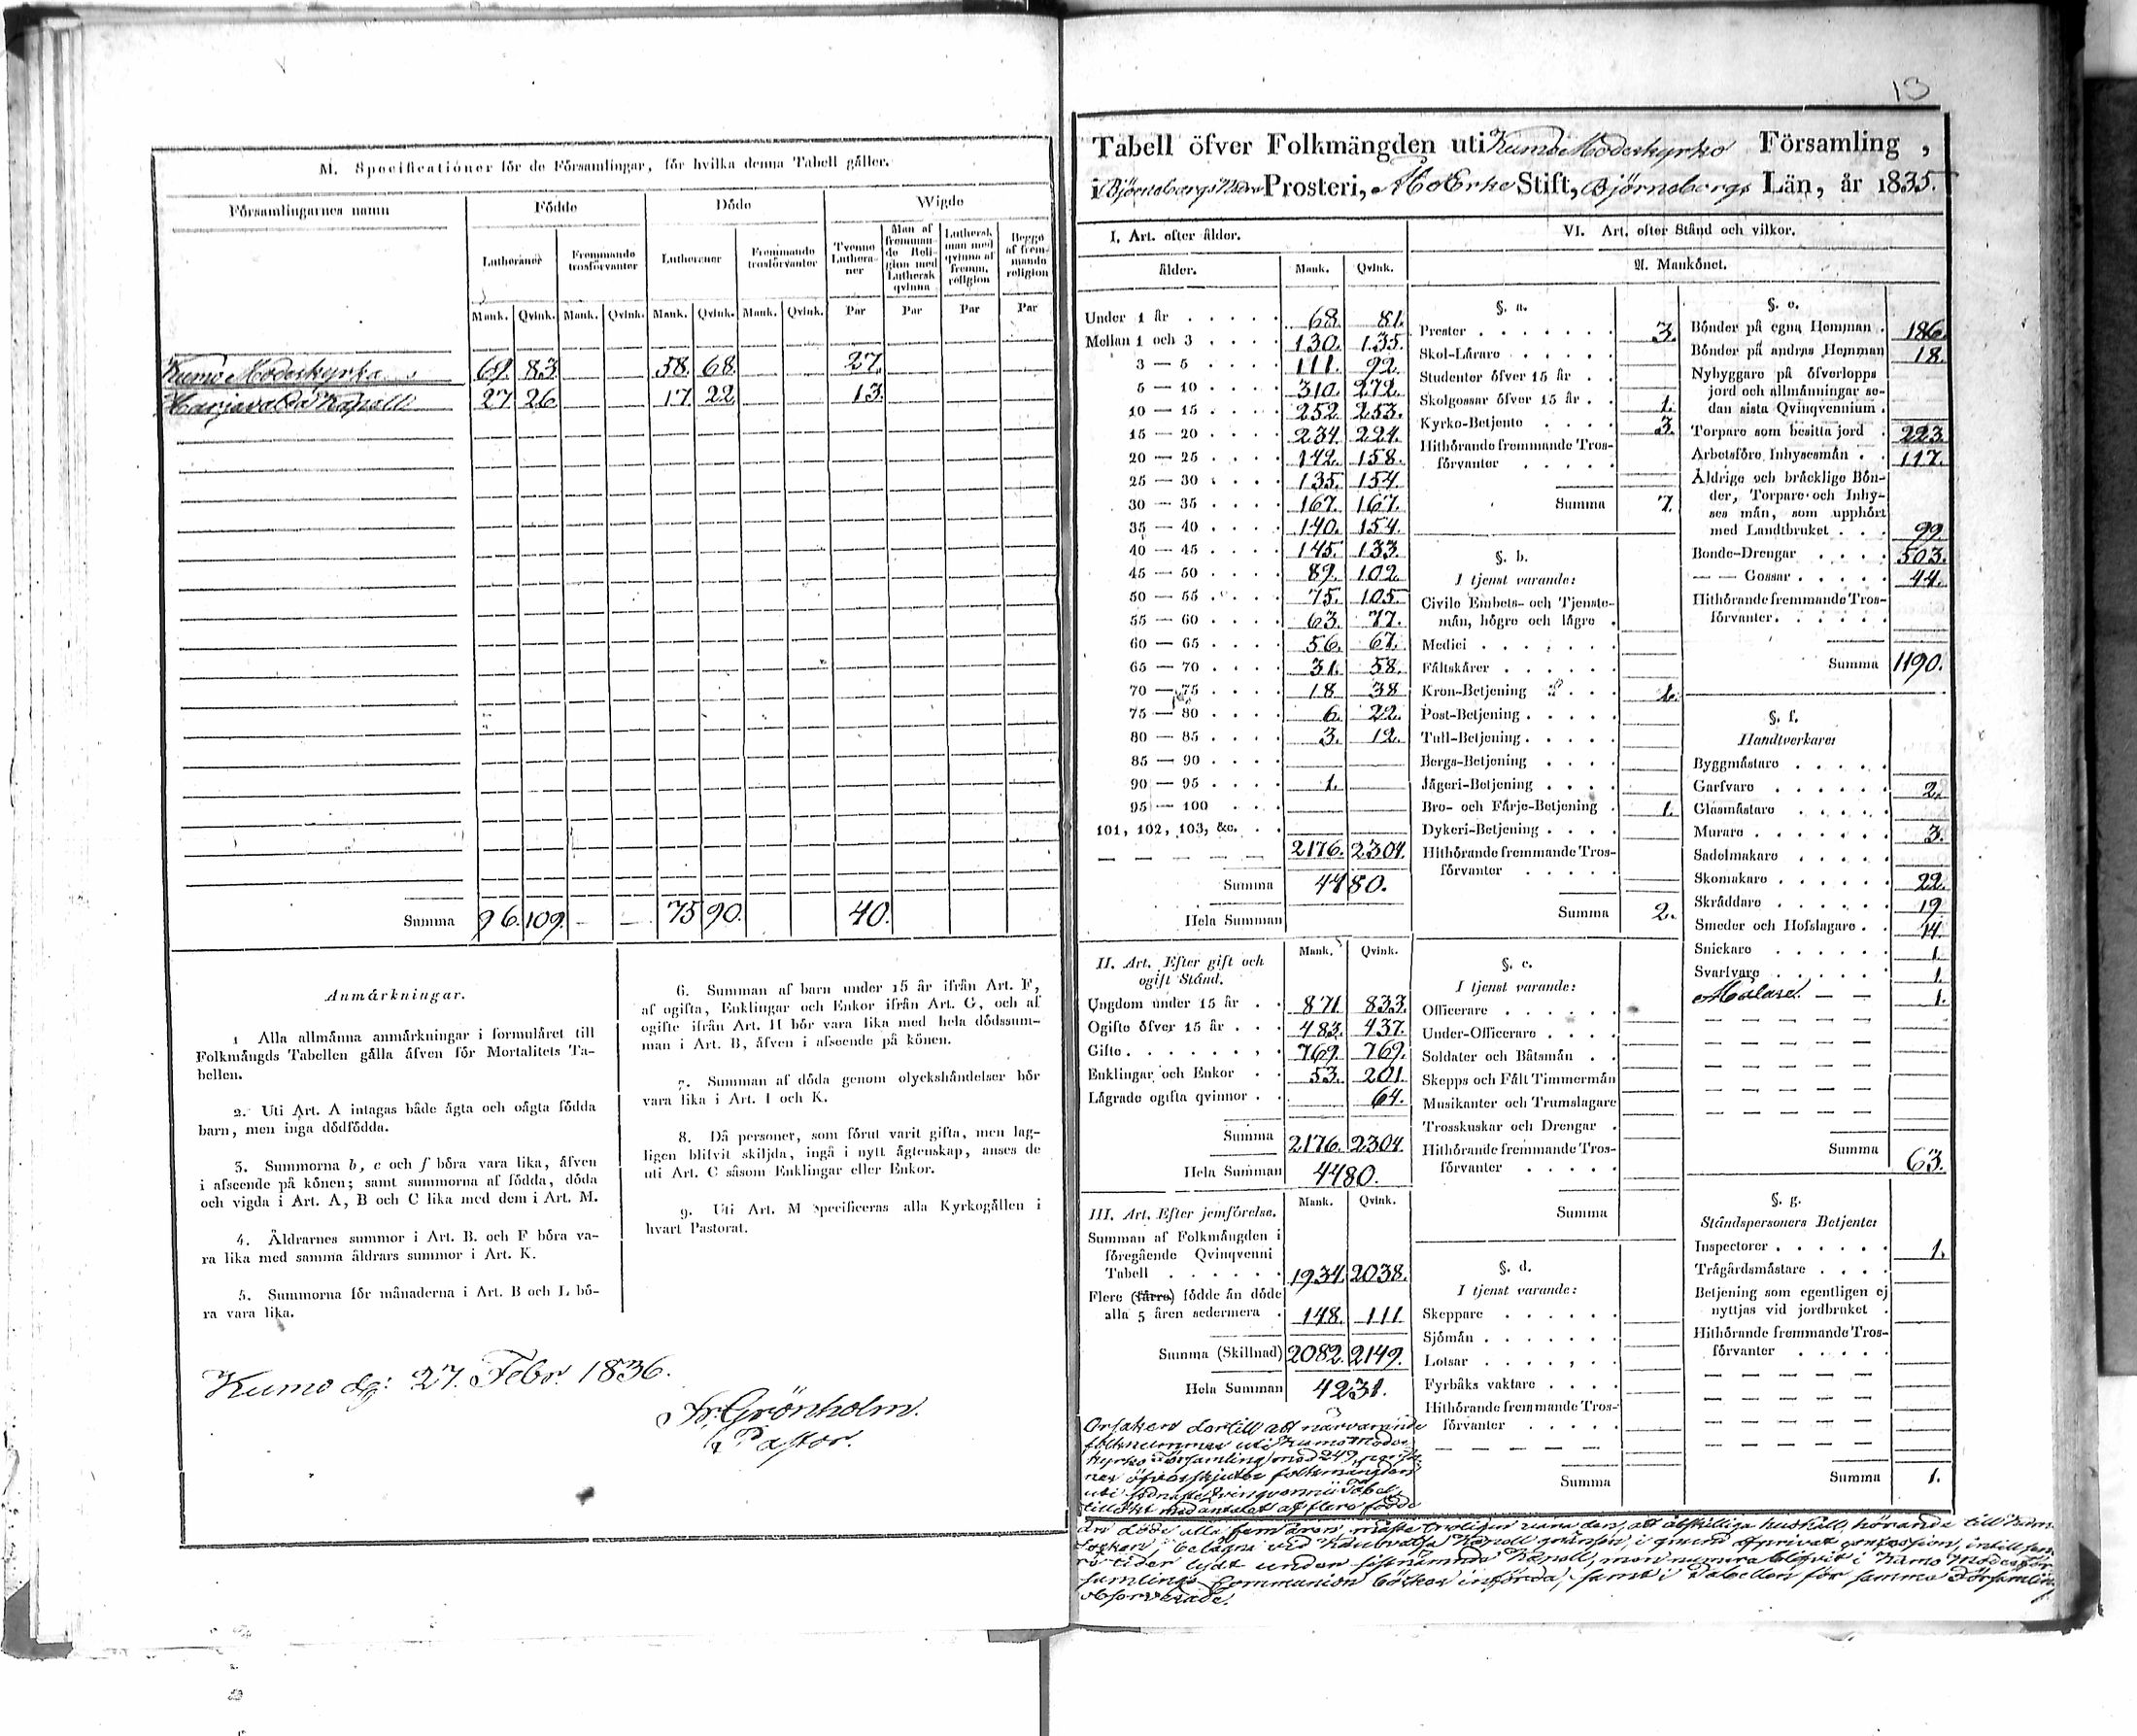 M. Specificationer för de Församlingar, för hvilka denna Tabell gäller.
Församlingarnes namn Födde Döde Wigde
Lutheraner Fremmande trosförvanter Lutheraner Fremmande trosförvanter Tvenne Lutheraner Man af fremmande Religion med Luthersk qvinna Luthersk man med qvinna af fremm. religion Begge af fremmande religion
Mank. Qvink. Mank. Qvink. Mank. Qvink. Mank. Qvink. Par Par Par Par
Kumo Moderkyrka 69. 83 58. 68. 27.
Harjavalda Kapell 27 26 17 22 13.
Summa 96. 109. — — 75 90. 40.
Anmärkningar.
1 Alla allmänna anmärkningar i formuläret till
Folkmängds Tabellen gälla äfven för Mortalitets Ta-
bellen.
2. Uti Art. A intagas både ägta och oägta födda
barn, men inga dödfödda.
3. Summorna b, c och f böra vara lika, äfven
i afseende på könen; samt summorna af födda, döda
och vigda i Art. A, B och C lika med dem i Art. M.
4. Åldrarnes summor i Art. B. och F böra va-
ra lika med samma åldrars summor i Art. K.
5. Summorna för månaderna i Art. B och L bö-
ra vara lika.
6. Summan af barn under 15 år ifrån Art. F,
af ogifta, Enklingar och Enkor ifrån Art. G, och af
ogifte ifrån Art. H bör vara lika med hela dödssum-
man i Art. B, äfven i afseende på könen.
7. Summan af döda genom olyckshändelser bör
vara lika i Art. I och K.
8. Då personer, som förut varit gifta, men lag-
ligen blifvit skiljda, ingå i nytt ägtenskap, anses de
uti Art. C såsom Enklingar eller Enkor.
9. Uti Art. M specificeras alla Kyrkogällen i
hvart Pastorat.
Kumo dg: 27. Febr. 1836.
Fr. Grönholm.
Pastor.
13
Tabell öfver Folkmängden uti Kumo Moderkyrko Församling,
i Björneborgs Nedre Prosteri, Åbo Erke Stift, Björneborgs Län, år 1835.
I. Art. efter ålder.
ålder. Mank. Qvink.
Under 1 år 68. 81.
Mellan 1 och 3 130. 135.
3 — 5 111. 92.
5 — 10 310. 272.
10 — 15 252. 253.
15 — 20 234. 224.
20 — 25 142. 158.
25 — 30 135. 154.
30 — 35 167. 167.
35 — 40 140. 154.
40 — 45 145. 133.
45 — 50 89. 102.
50 — 55 75. 105.
55 — 60 63. 77.
60 — 65 56. 67.
65 — 70 31. 58.
70 — 75 18 38
75 — 80 6. 22.
80 — 85 3. 12.
85 — 90
90 — 95 1.
95 — 100
101, 102, 103, &c.
— — — — — 2176. 2304.
Summa 4480.
Hela Summan
II. Art. Efter gift och
ogift Stånd. Mank. Qvink.
Ungdom under 15 år 871. 833.
Ogifte öfver 15 år 483. 437.
Gifte 769. 769.
Enklingar och Enkor 53. 201.
Lägrade ogifta qvinnor 64.
Summa 2176. 2304.
Hela Summan 4480.
III. Art. Efter jemförelse. Mank. Qvink.
Summan af Folkmängden i
föregående Qvinqvenni
Tabell 1934. 2038.
Flere (färre) födde än döde
alla 5 åren sedermera 148. 111
Summa (Skillnad) 2082. 2149.
Hela Summan 4231.
VI. Art. efter Stånd och vilkor.
A. Mankönet.
§. a.
Prester 3.
Skol-Lärare
Studenter öfver 15 år
Skolgossar öfver 15 år 1.
Kyrko-Betjente 3.
Hithörande fremmande Tros-
förvanter
Summa 7.
§. b.
I tjenst varande:
Civile Embets- och Tjenste-
män, högre och lägre
Medici
Fältskärer
Kron-Betjening 1.
Post-Betjening
Tull-Betjening
Bergs-Betjening
Jägeri-Betjening
Bro- och Färje-Betjening 1.
Dykeri-Betjening
Hithörande fremmande Tros-
förvanter
Summa 2.
§. c.
I tjenst varande:
Officerare
Under-Officerare
Soldater och Båtsmän
Skepps och Fält Timmermän
Musikanter och Trumslagare
Trosskuskar och Drengar
Hithörande fremmande Tros-
förvanter
Summa
§. d.
I tjenst varande:
Skeppare
Sjömän
Lotsar
Fyrbåks vaktare
Hithörande fremmande Tros-
förvanter
— — — — —
Summa
§. e.
Bönder på egna Hemman 186.
Bönder på andras Hemman 18.
Nybyggare på öfverlopps
jord och allmänningar se-
dan sista Qvinqvennium
Torpare som besitta jord 223.
Arbetsföre Inhysesmän 117.
Åldrige och bräcklige Bön-
der, Torpare och Inhy-
ses män, som upphört
med Landtbruket 99
Bonde-Drengar 503.
— — Gossar 44.
Hithörande fremmande Tros-
förvanter
Summa 1190.
§. f.
Handtverkare:
Byggmästare
Garfvare 2.
Glasmästare
Murare 3.
Sadelmakare
Skomakare 22.
Skräddare 19
Smeder och Hofslagare 14.
Snickare 1.
Svarfvare 1.
Målare — — 1.
— — — — —
— — — — —
— — — — —
— — — — —
— — — — —
Summa 63.
§. g.
Ståndspersoners Betjente:
Inspectorer 1.
Trägårdsmästare
Betjening som egentligen ej
nyttjas vid jordbruket
Hithörande fremmande Tros-
förvanter
— — — — —
— — — — —
— — — — —
— — — — —
Summa 1.
Orsaken dertill att närvarande
folknummer uti Kumo Moder
kyrko Församling med 249 perso
ner öfverskjuter folkmängden
uti sednaste Qvinqvennii Tabell,
tillökt med antalet af flere födde
än döde alla fem åren, måste troligen vara den, att åtskillige hushåll, hörande till Kumo
Socken, belägne vid Kapell gränsen, i grund af privat intill sed
tider lydt under sistnämnde Kapell, men numera blifvit i Kumo Moderför
samlings Communion böcker införda, samt i Tabellen för samma Församling
observerade.